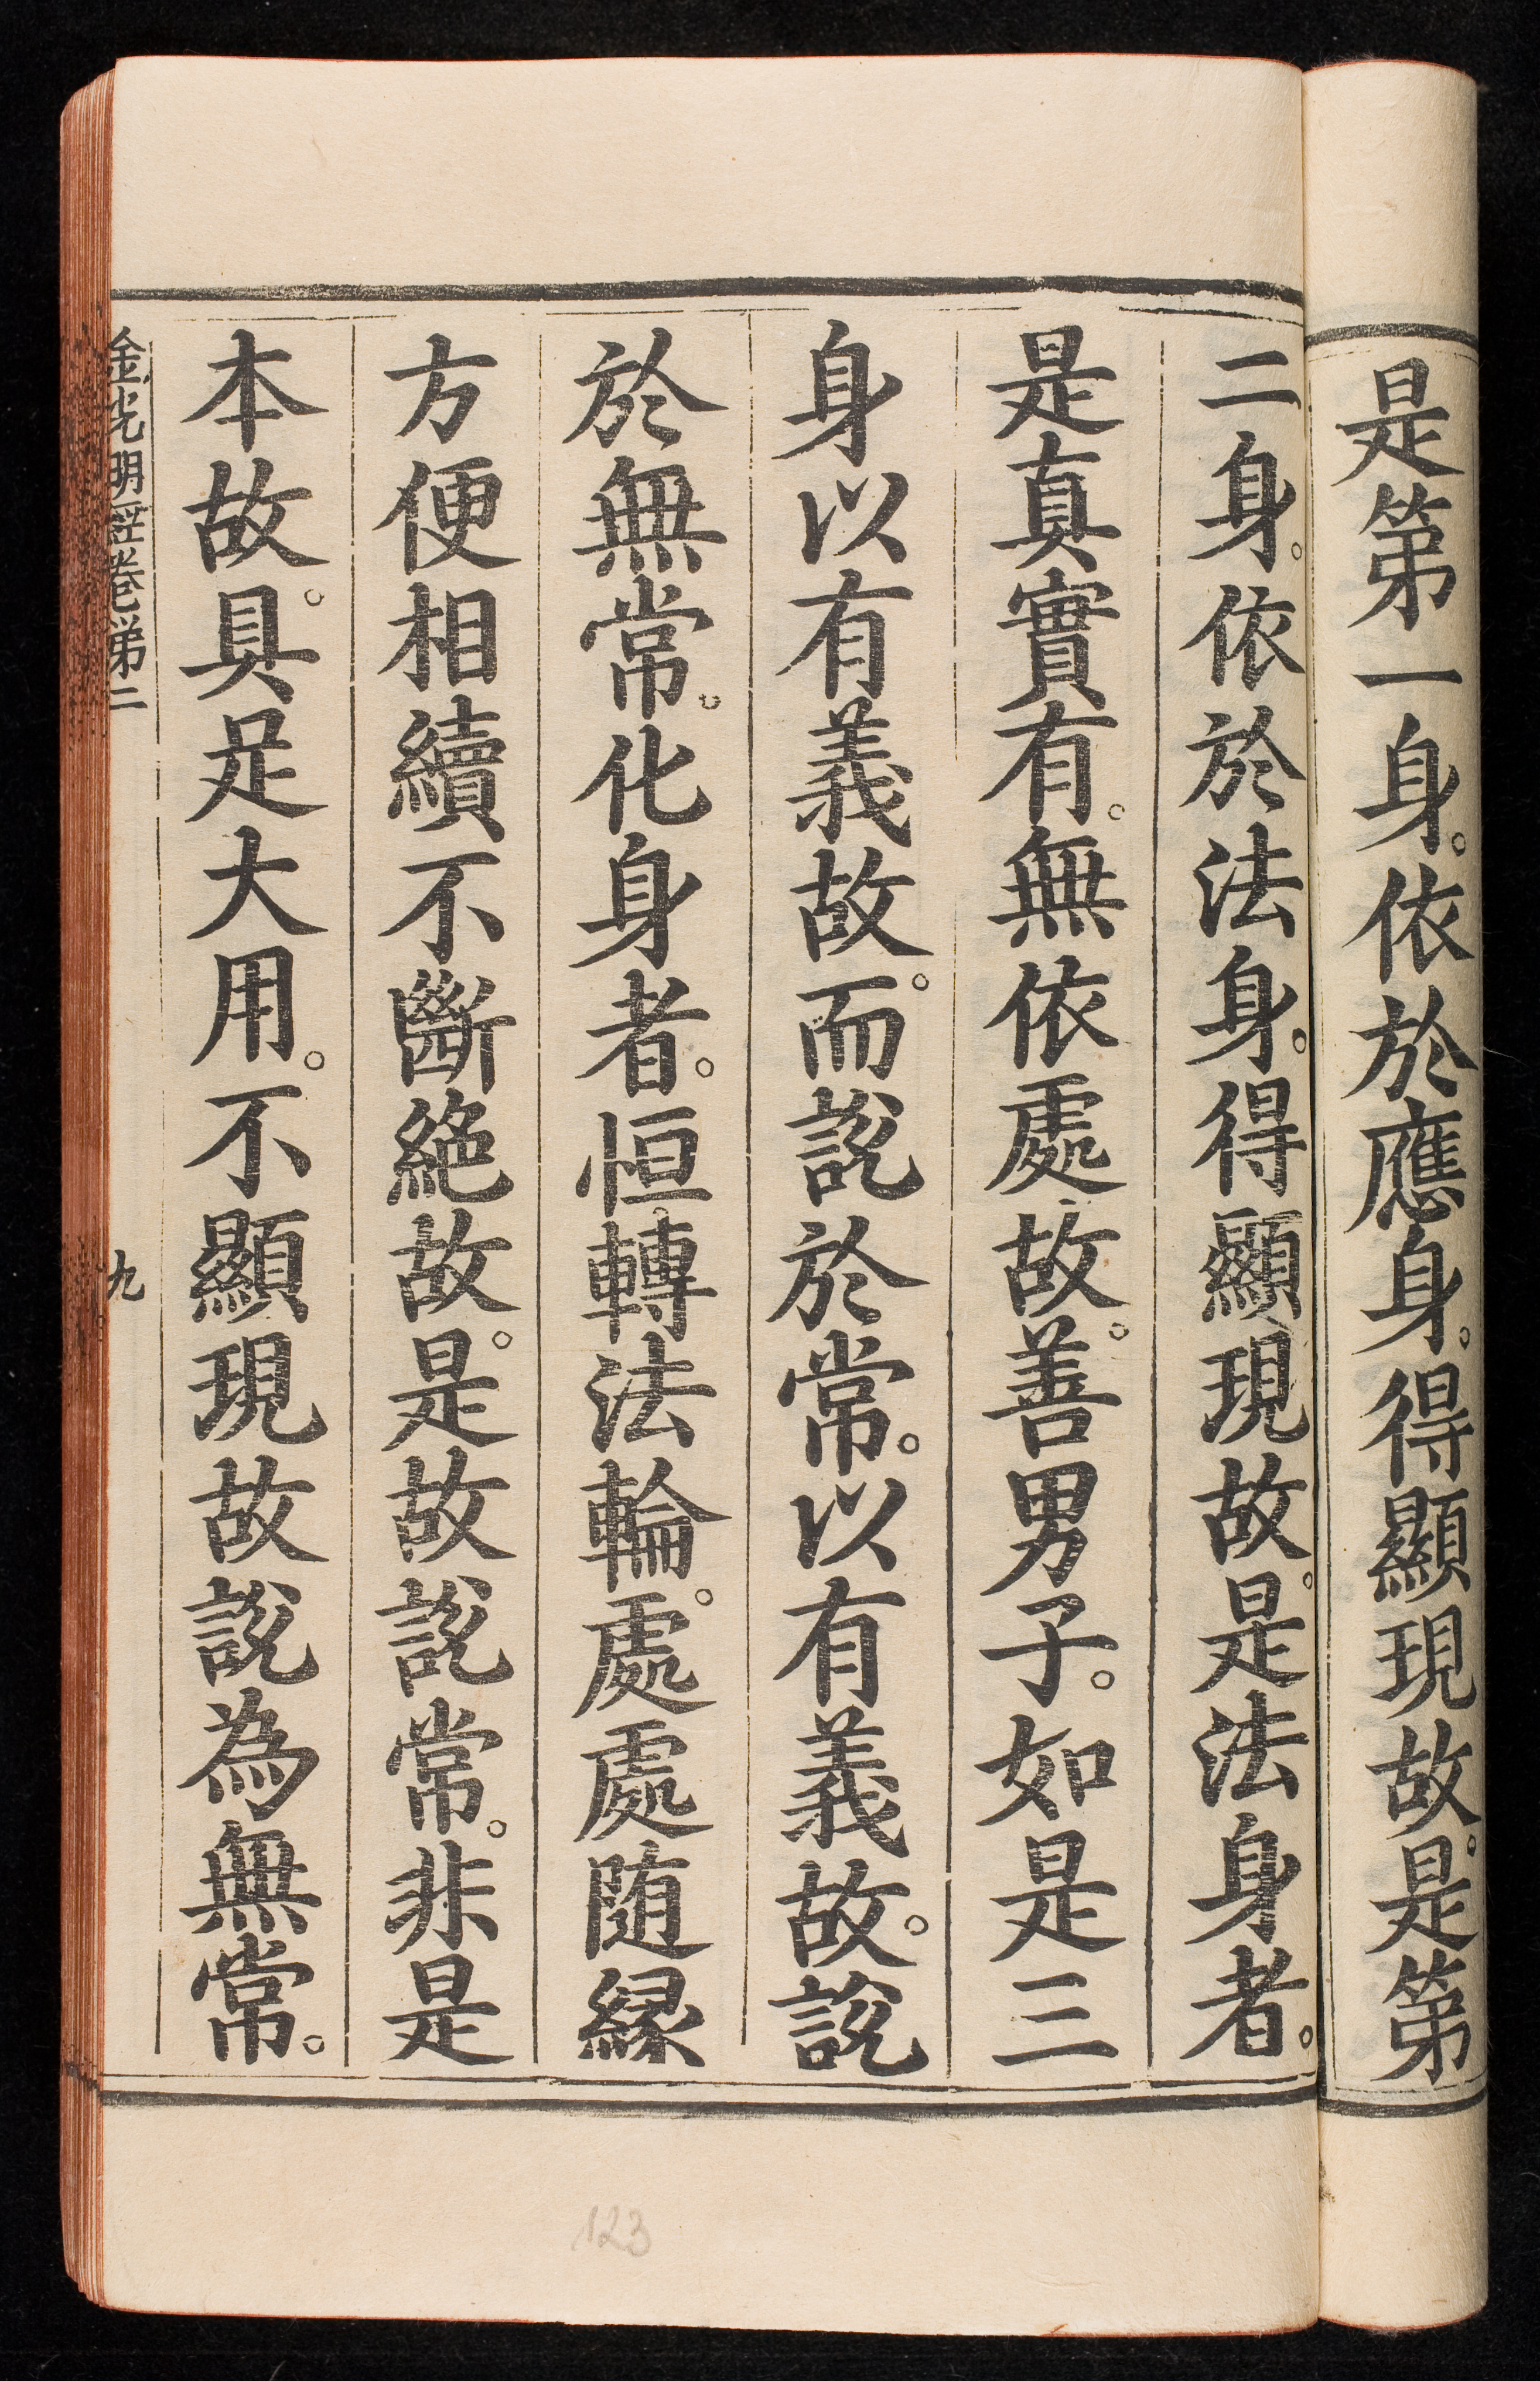 是第一身。依於應身。得顯現故。是第
二身。依於法身。得顯現故。是法身者。
是真實有。無依處故。善男子。如是三
身以有義故。而說於常。以有義故。說
於無常。化身者。恒轉法輪。處處随縁
方便相續不斷絕故。是故說常。非是
本故。具足大用。不顯現故說為無常。
金光明經卷第二
九
123